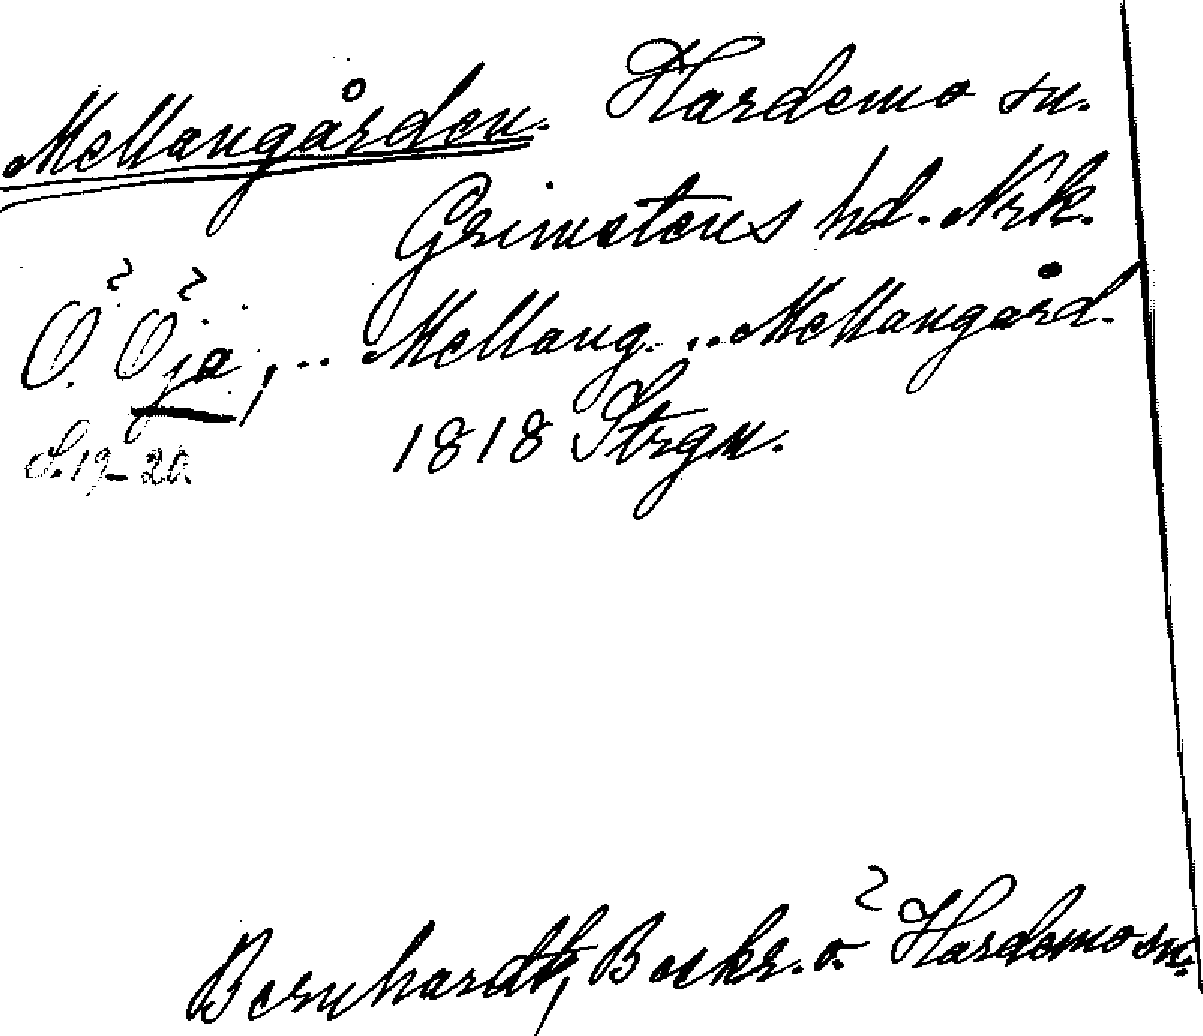 Mellangården. Hardemo sn.
Grimstens hd. Nrk.
Ö. Öja, .. Mellang. .. Mellangård.
S. 19-20. 1818 Strgn.
Bernhardt, Beskr. ö. Hardemo sn.